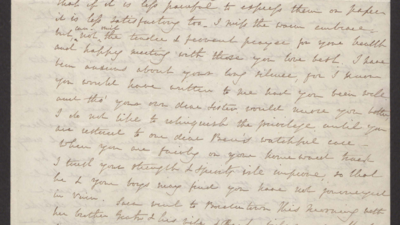 that if it is less painful to express them on paper
it is less satisfactory too. I miss the warm embrace,
but not the tender & fervent prayer for your health
and happy meeting with those you love best. I have
been anxious about your long silence, for I know
you would have written to me had you been well
and tho' your own dear sister would nurse you better
I do not like to relinquish the privilege until you
are restored to our dear watchful care.
When you are fairly on your homeward track
I trust your strength & spirits will improve, so that
he & your boys may find you have not journeyed
in vain. went to this morning with
her brother & his wife &